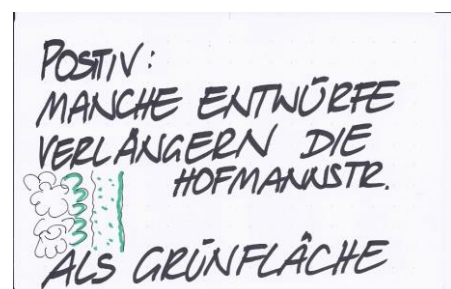 POSITIV:
MANCHE ENTWÜRFE
VERLÄNGERN DIE
HOFMANNSTR.
ALS GRÜNFLÄCHE